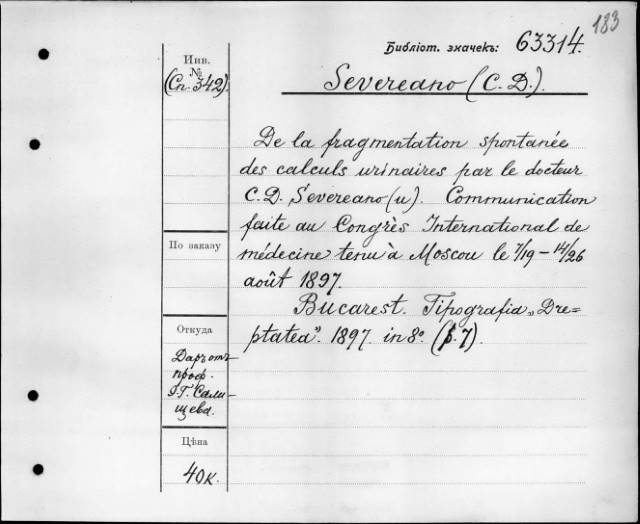 183
Библіот. значекъ: 63314.
Severeano (C. D.).
Инв.
№
(Сп. 342).
De la fragmentation spontanée
des calculs urinaires par le docteur
C. D. Severeano (u). Communication
faite au Congrès International de
médecine tenu à Moscou le 7/19 – 14/26
août 1897.
Bucarest. Tipografia „Dre=
ptatea”. 1897. in 8° (p. 7).
По заказу
Откуда
Даръ отъ
проф.
Э.Г. Сали-
щева.
Цѣна
40 к.